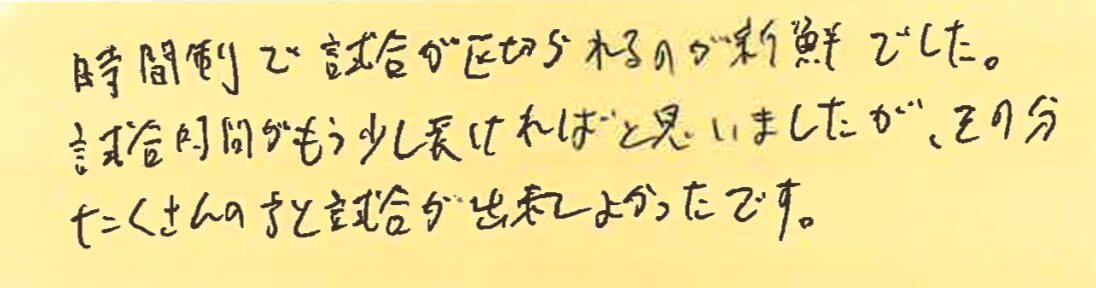 時間制で試合が区切られるのが新鮮でした。
試合時間がもう少し長ければと思いましたが、その分
たくさんの方と試合が出来てよかったです。